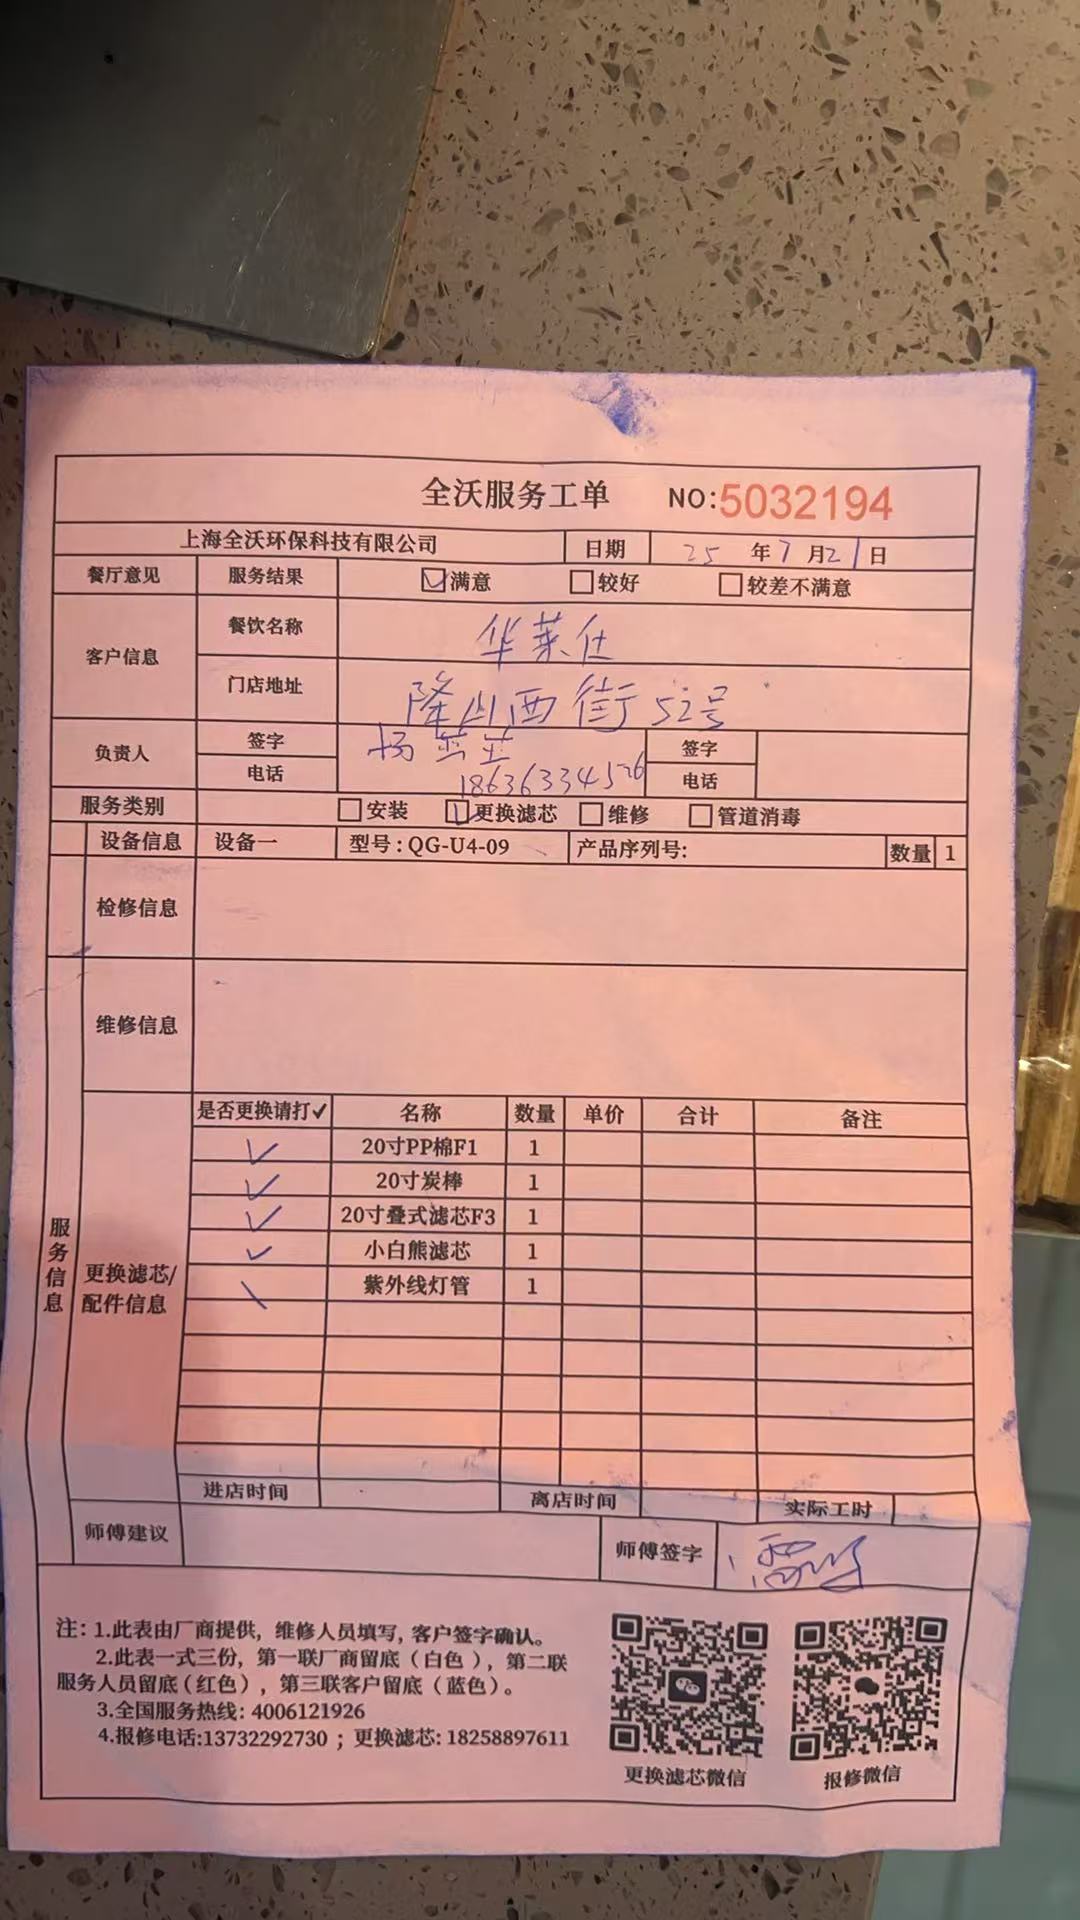 全沃服务工单 NO:5032194
上海全沃环保科技有限公司 日期 25 年 7 月 21 日
餐厅意见 服务结果 ☑满意 □较好 □较差不满意
客户信息 餐饮名称 华莱仕
门店地址 隆山西街52号
负责人 签字 杨 签字
电话 18636334526 电话
服务类别 □安装 ☑更换滤芯 □维修 □管道消毒
设备信息 设备一 型号:QG-U4-09 产品序列号: 数量 1
检修信息
维修信息
服务信息
更换滤芯/配件信息
是否更换请打✓ 名称 数量 单价 合计 备注
✓ 20寸PP棉F1 1
✓ 20寸炭棒 1
✓ 20寸叠式滤芯F3 1
✓ 小白熊滤芯 1
\ 紫外线灯管 1
进店时间 离店时间 实际工时
师傅建议 师傅签字
注: 1.此表由厂商提供, 维修人员填写, 客户签字确认。
2.此表一式三份, 第一联厂商留底(白色), 第二联
服务人员留底(红色), 第三联客户留底(蓝色)。
3.全国服务热线: 4006121926
4.报修电话:13732292730 ; 更换滤芯: 18258897611
更换滤芯微信 报修微信